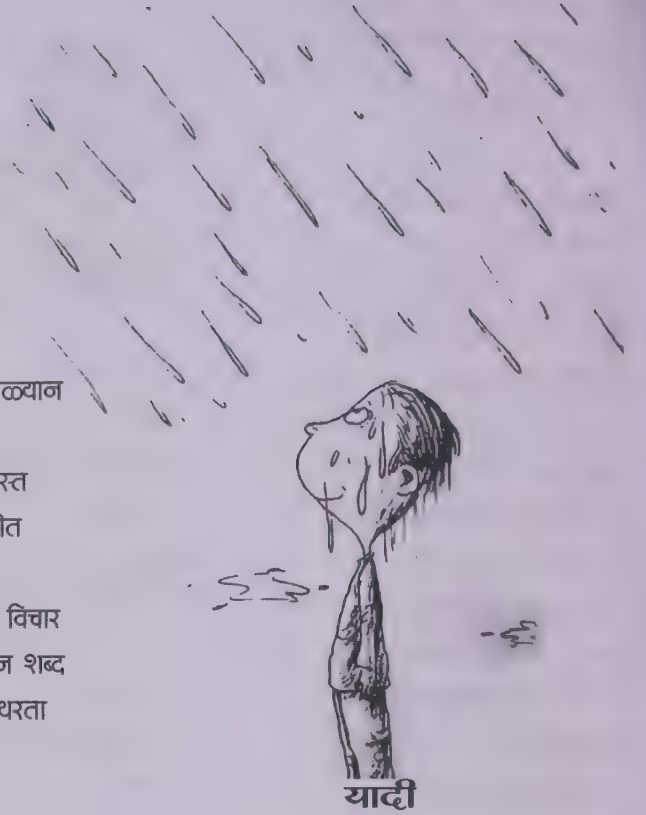 ळ्यान
स्त
ीत
विचार
न शब्द
थरता
यादी